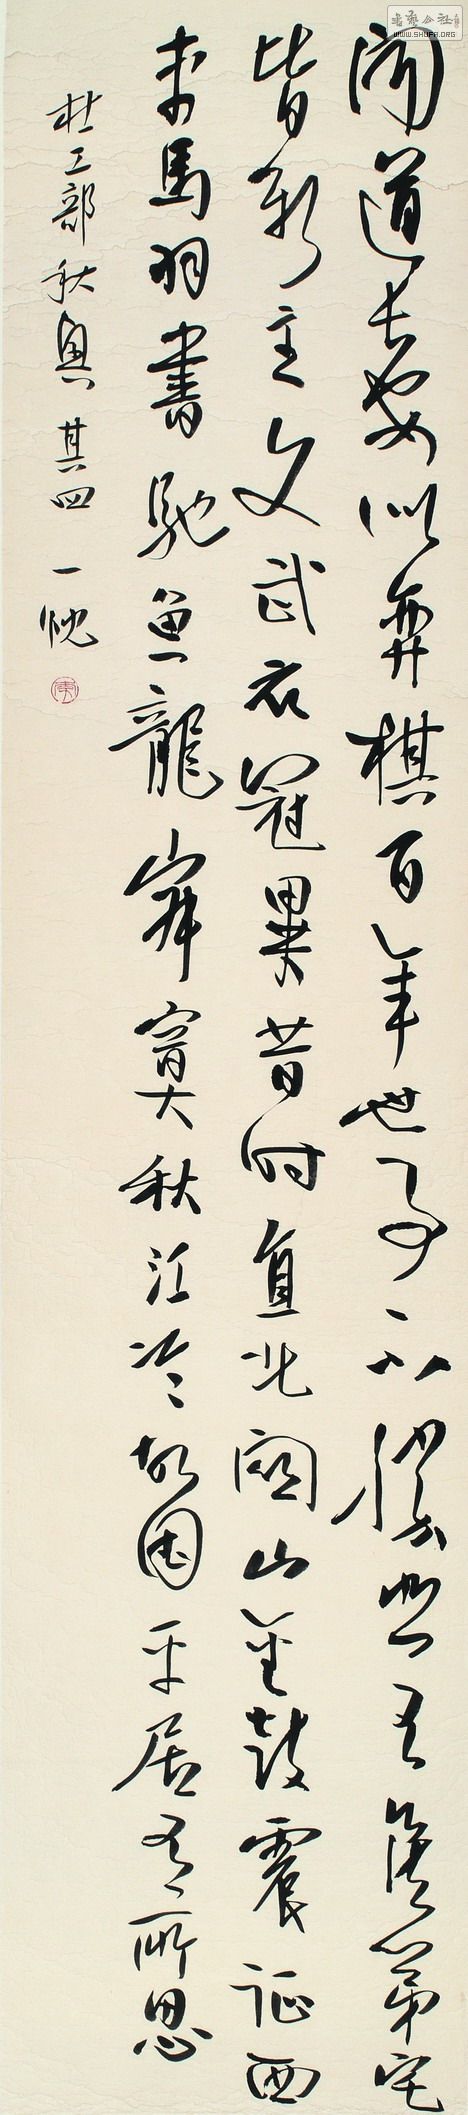 書藝公社
WWW.SHUFA.ORG
聞道長安似弈棋百年世事不勝悲王侯第宅
皆新主文武衣冠異昔時直北關山金鼓震征西
車馬羽書馳魚龍寂寞秋江冷故國平居有所思
杜工部秋興其四 一